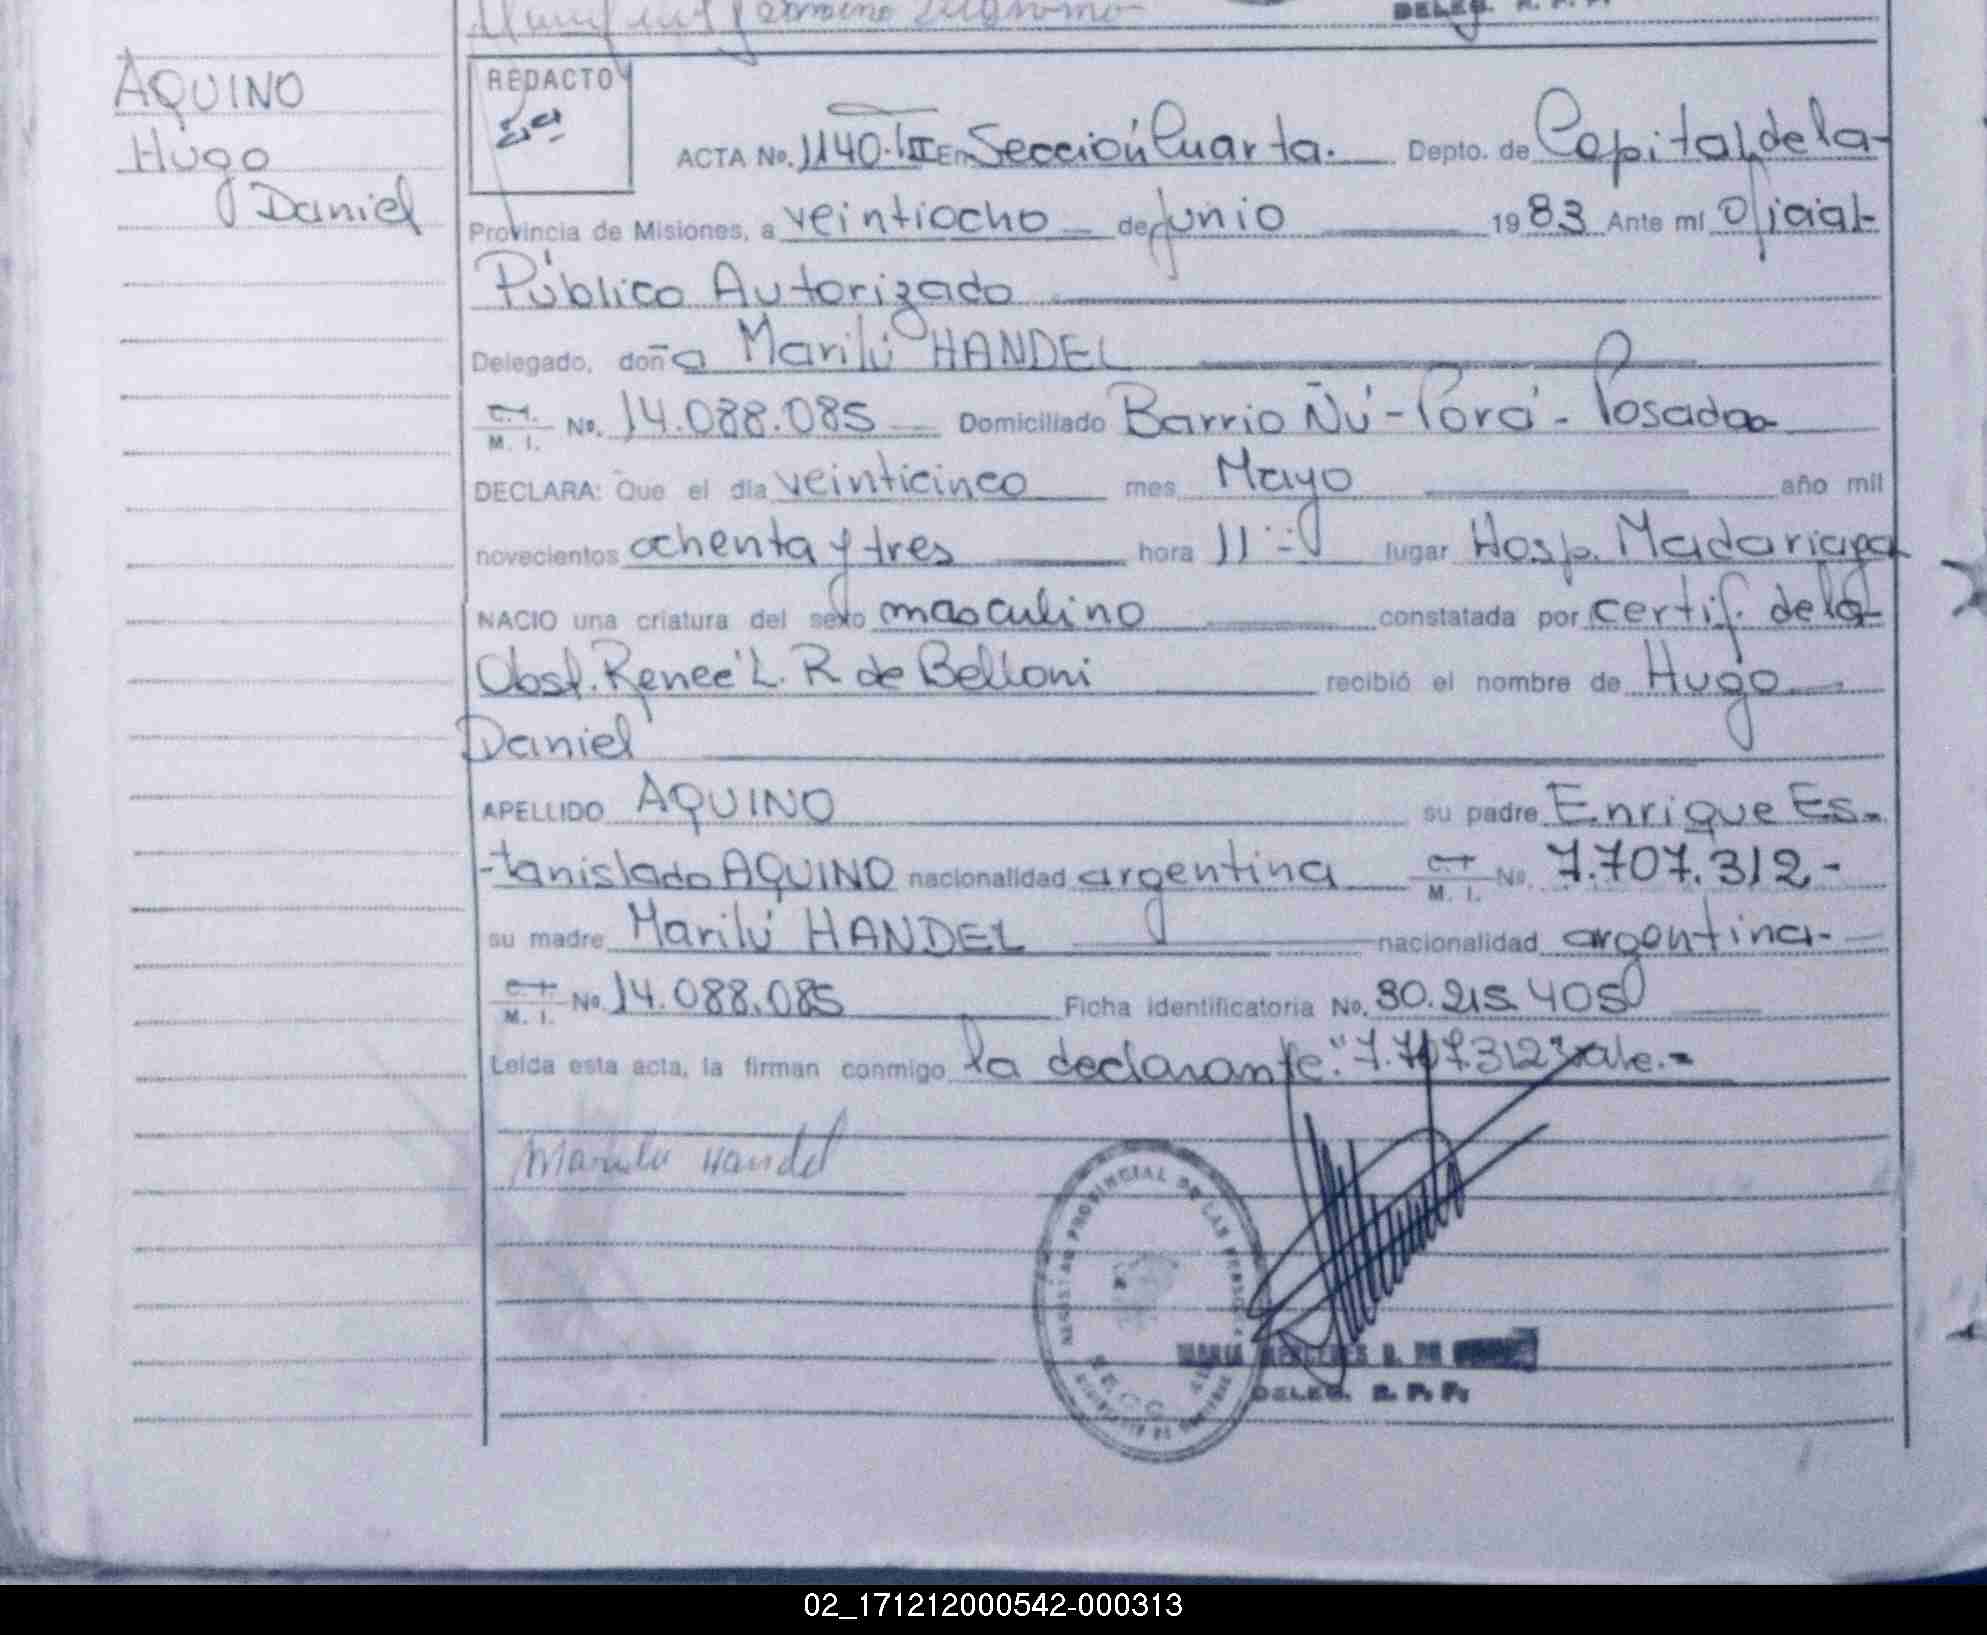 DELEG. R. P. P.
AQUINO
Hugo
Daniel
REDACTO
ACTA No. 1140-III En Sección Cuarta. Depto. de Capital de la-
Provincia de Misiones, a veintiocho de junio 1983 Ante mí Oficial-
Público Autorizado
Delegado, doña Marilú HANDEL
C.I. M. I. No. 14.088.085 Domiciliado Barrio Ñú-Porá- Posadas
DECLARA: Que el día veinticinco mes Mayo año mil
novecientos ochenta y tres hora 11:- lugar Hosp. Madariaga
NACIO una criatura del sexo masculino constatada por certif. de la-
Obst. Reneé L. R de Belloni recibió el nombre de Hugo
Daniel
APELLIDO AQUINO su padre Enrique Es-
-tanislado AQUINO nacionalidad argentina C.I. M. I. No. 7.707.312-
su madre Marilú HANDEL nacionalidad argentina-
C.I. M. I. No. 14.088.085 Ficha identificatoria No. 30.215.405
Leída esta acta, la firman conmigo la declarante. "7.707.312" vale.-
Marilu Handel
REGISTRO PROVINCIAL DE LAS PERSONAS
MARIA MERCEDES D. DE
DELEG. R. P. P.
02_171212000542-000313